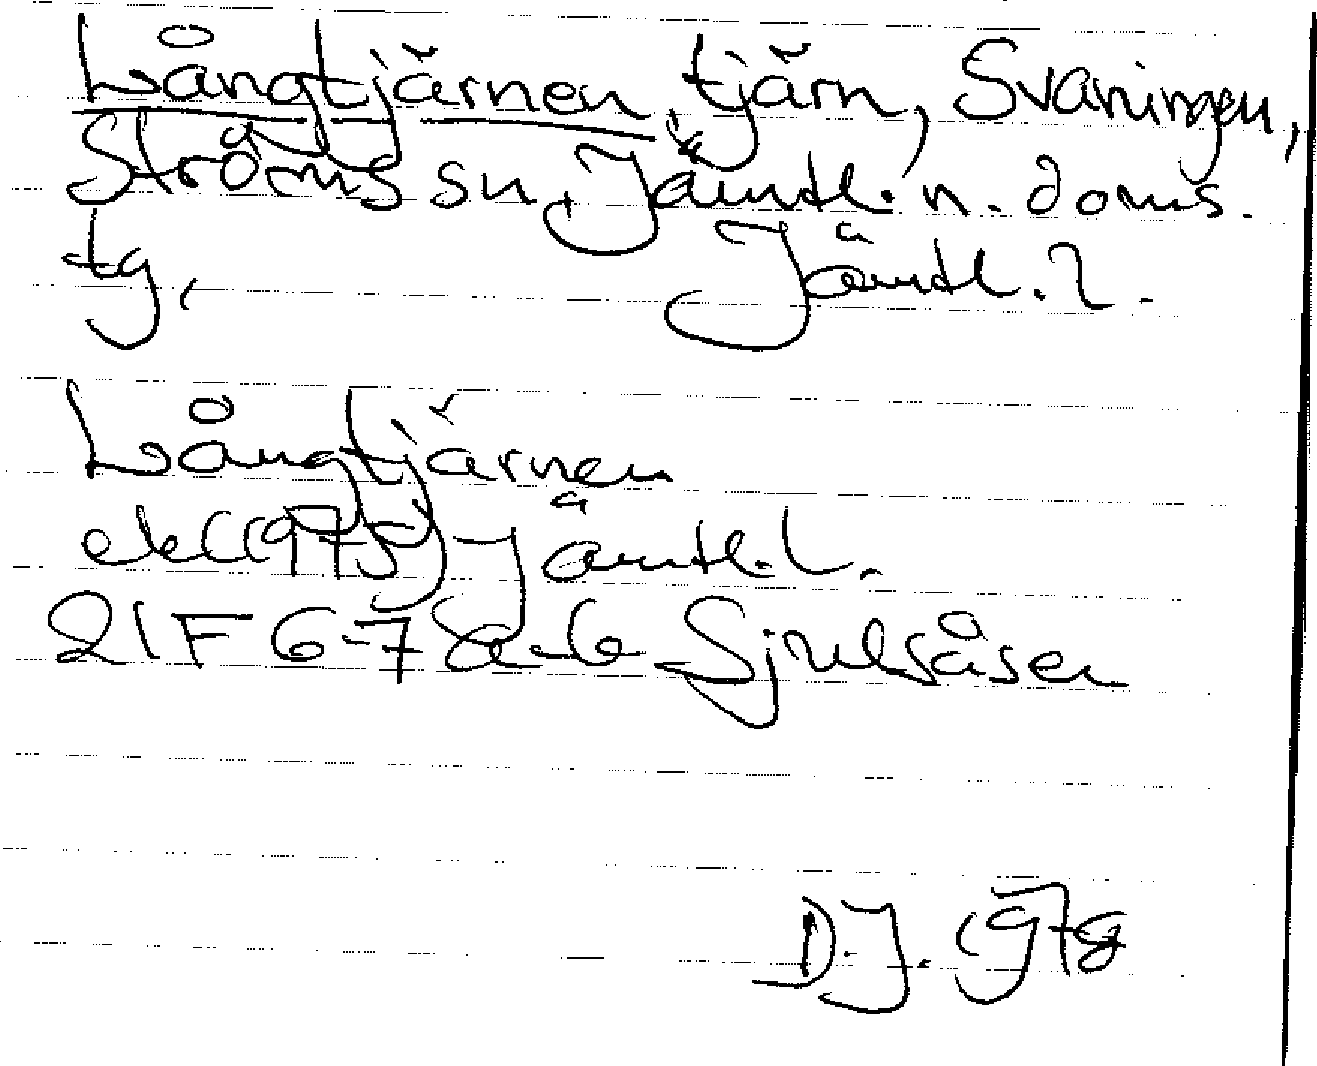 Långtjärnen, tjärn, Svaningen,
Ströms sn, Jämtl. n. doms.
tg. Jämtl. l.
Långtjärnen
ek (1975) Jämtl. l.
21F 6-7 a-b Sjulsåsen
D.J. 1978